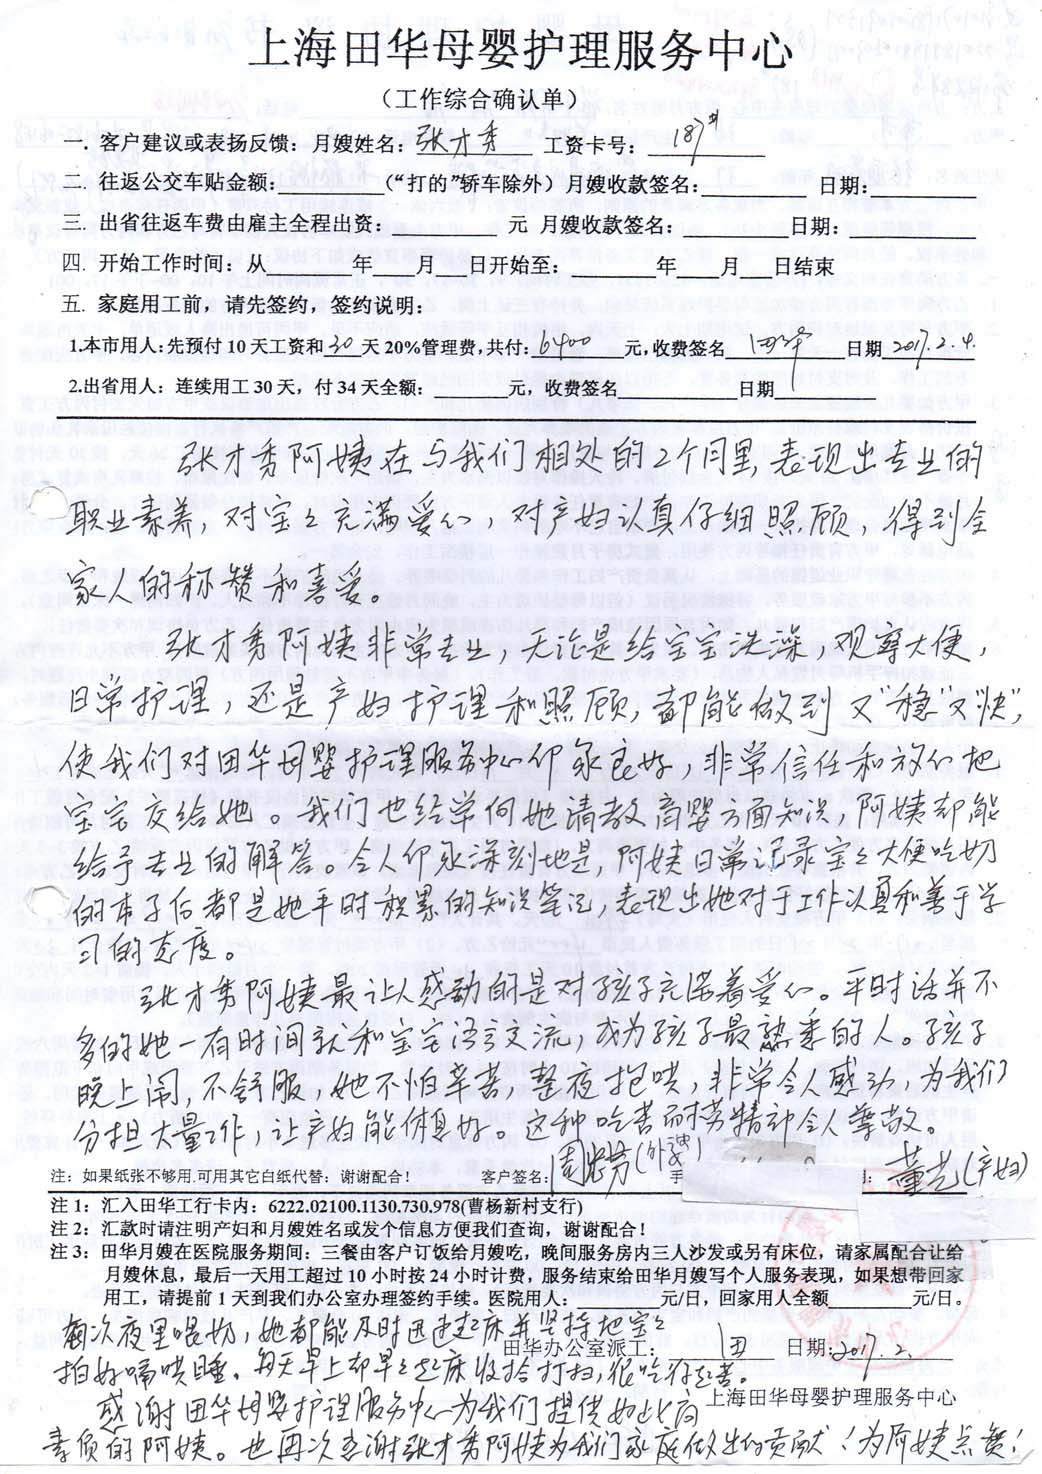 上海田华母婴护理服务中心
（工作综合确认单）
一. 客户建议或表扬反馈：月嫂姓名：张才秀 工资卡号：187#
二. 往返公交车贴金额： （“打的”轿车除外）月嫂收款签名： 日期：
三. 出省往返车费由雇主全程出资： 元 月嫂收款签名： 日期：
四. 开始工作时间：从 年 月 日开始至： 年 月 日结束
五. 家庭用工前，请先签约，签约说明：
1.本市用人：先预付10天工资和30天20%管理费，共付：6400 元，收费签名 田华 日期 2017.2.4.
2.出省用人：连续用工30天，付34天全额： 元，收费签名 日期
张才秀阿姨在与我们相处的2个月里，表现出专业的
职业素养，对宝宝充满爱心，对产妇认真仔细照顾，得到全
家人的称赞和喜爱。
张才秀阿姨非常专业，无论是给宝宝洗澡，观察大便，
日常护理，还是产妇护理和照顾，都能做到又“稳”又“快”，
使我们对田华母婴护理服务中心印象良好，非常信任和放心地
宝宝交给她。我们也经常向她请教育婴方面知识，阿姨都能
给予专业的解答。令人印象深刻地是，阿姨日常记录宝宝大便吃奶
的本子后都是她平时积累的知识笔记，表现出她对于工作认真和善于学
习的态度。
张才秀阿姨最让人感动的是对孩子充满着爱心。平时话并不
多的她，有时间就和宝宝语言交流，成为孩子最熟悉的人。孩子
晚上闹，不舒服，她不怕辛苦，整夜抱哄，非常令人感动，为我们
分担大量工作，让产妇能休息好。这种吃苦耐劳精神令人尊敬。
注：如果纸张不够用.可用其它白纸代替：谢谢配合！ 客户签名： (外婆) 手 董艺(产妇)
注1：汇入田华工行卡内：6222.02100.1130.730.978(曹杨新村支行)
注2：汇款时请注明产妇和月嫂姓名或发个信息方便我们查询，谢谢配合！
注3：田华月嫂在医院服务期间：三餐由客户订饭给月嫂吃，晚间服务房内三人沙发或另有床位，请家属配合让给
月嫂休息，最后一天用工超过10小时按24小时计费，服务结束给田华月嫂写个人服务表现，如果想带回家
用工，请提前1天到我们办公室办理签约手续。医院用人： 元/日，回家用人全额 元/日。
每次夜里喂奶，她都能及时迅速起床并坚持把宝宝
田华办公室派工： 田 日期：2017.2.
拍好嗝哄睡。每天早上却早早起床收拾打扫，很吃得起苦。
上海田华母婴护理服务中心
感谢田华母婴护理服务中心为我们提供如此高
素质的阿姨。也再次感谢张才秀阿姨为我们家庭做出的贡献！为阿姨点赞！